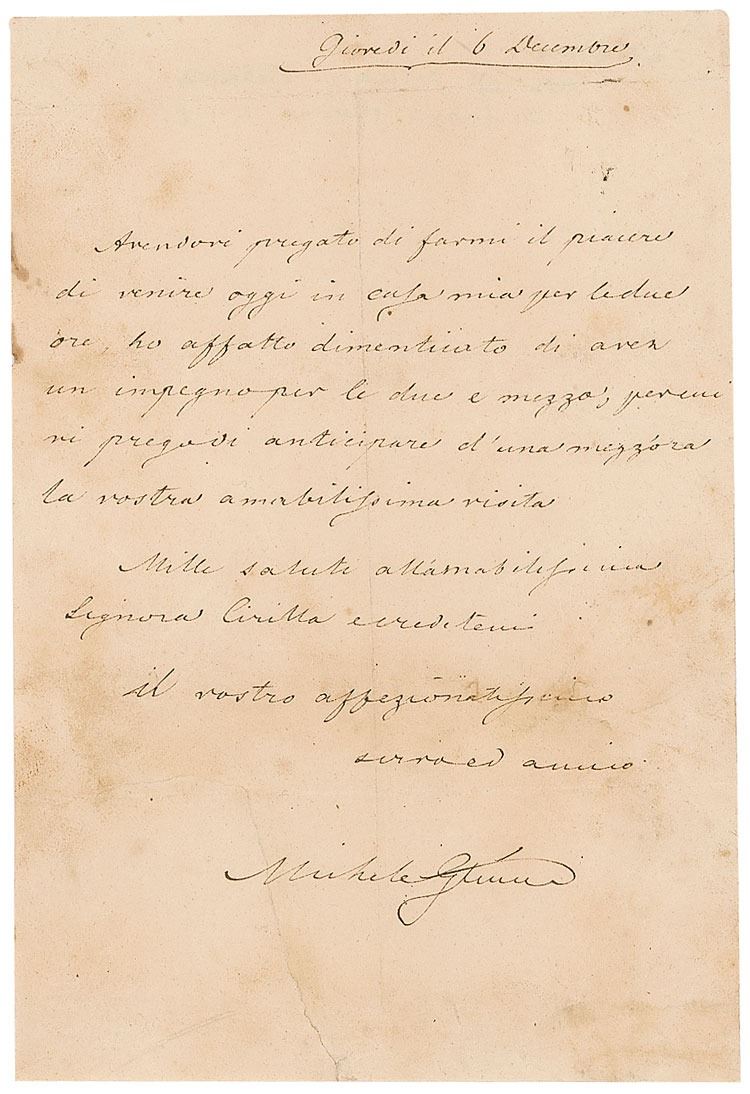 Giovedi il 6 Decembre
Avendovi pregato di farmi il piacere
di venire oggi in casa mia per le due
ore, ho affatto dimenticato di aver
un impegno per le due e mezzo, percui
vi prego di anticipare d'una mezz'ora
la vostra amabilissima visita
Mille saluti all'amabilissima
Signora Cirilla e credetemi
il vostro affezionatissimo
servo ed amico
Michele